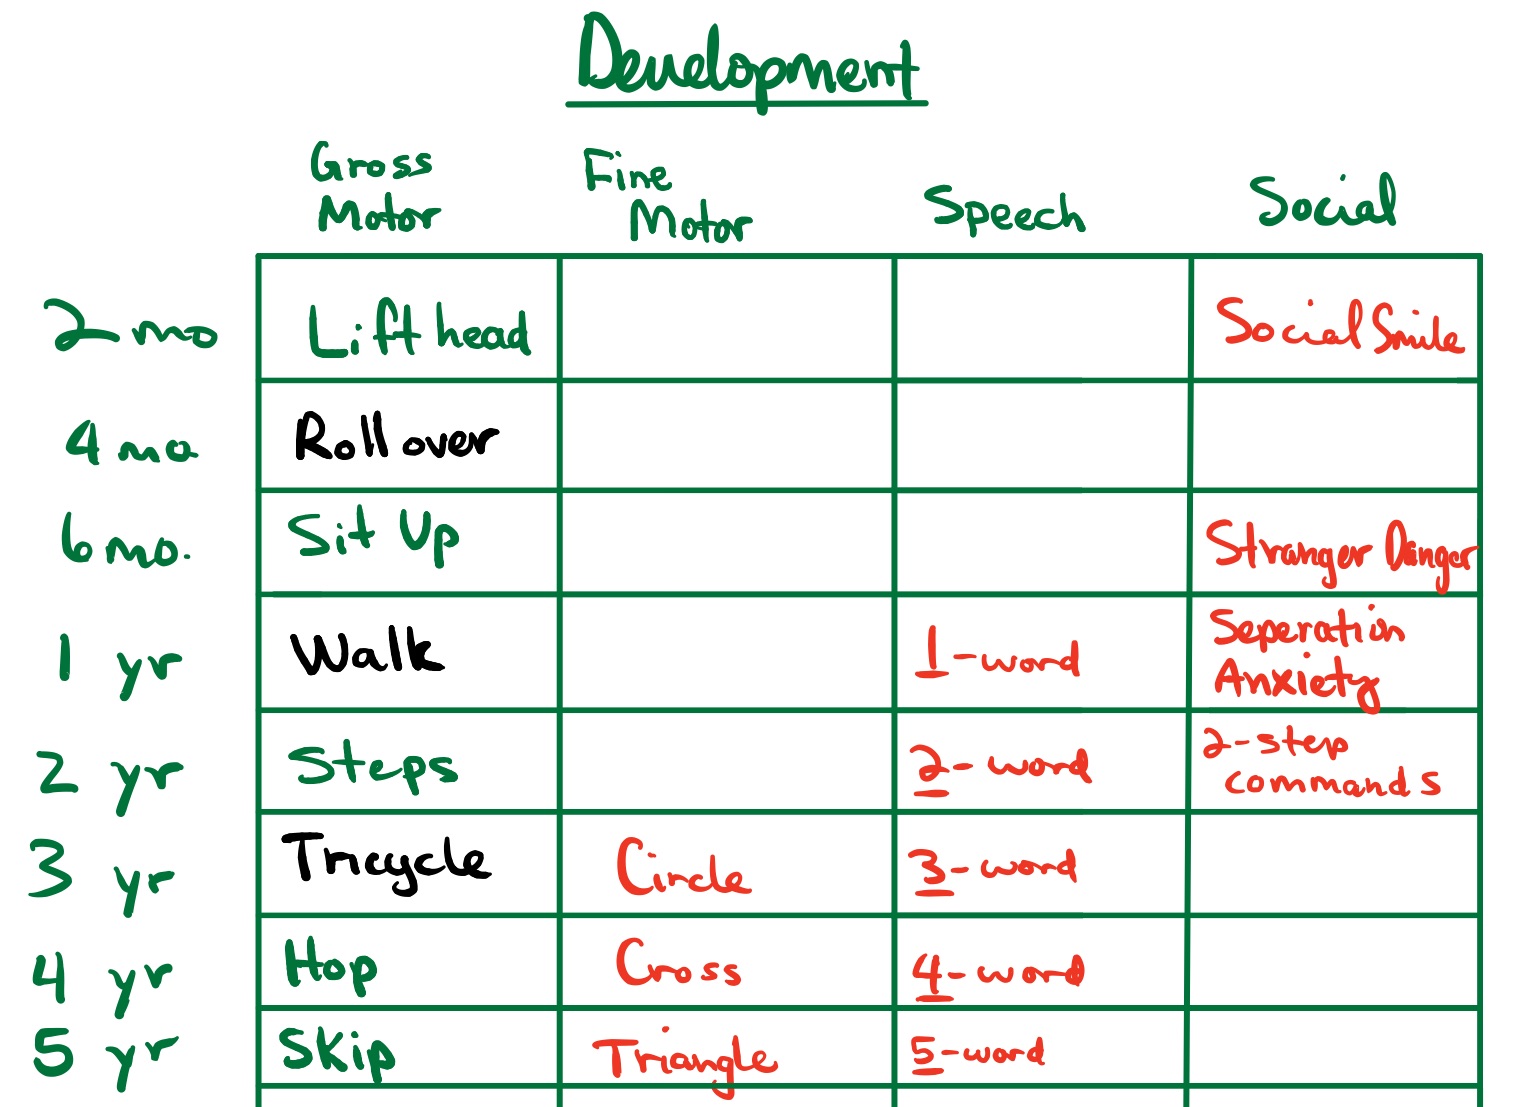 Development
Gross
Motor
Fine
Motor
Speech
Social
2 mo
Lift head
Social Smile
4 mo.
Roll over
6 mo.
Sit Up
Stranger Danger
1 yr
Walk
1-word
Seperation
Anxiety
2 yr
Steps
2-word
2-step
commands
3 yr
Tricycle
Circle
3-word
4 yr
Hop
Cross
4-word
5 yr
Skip
Triangle
5-word